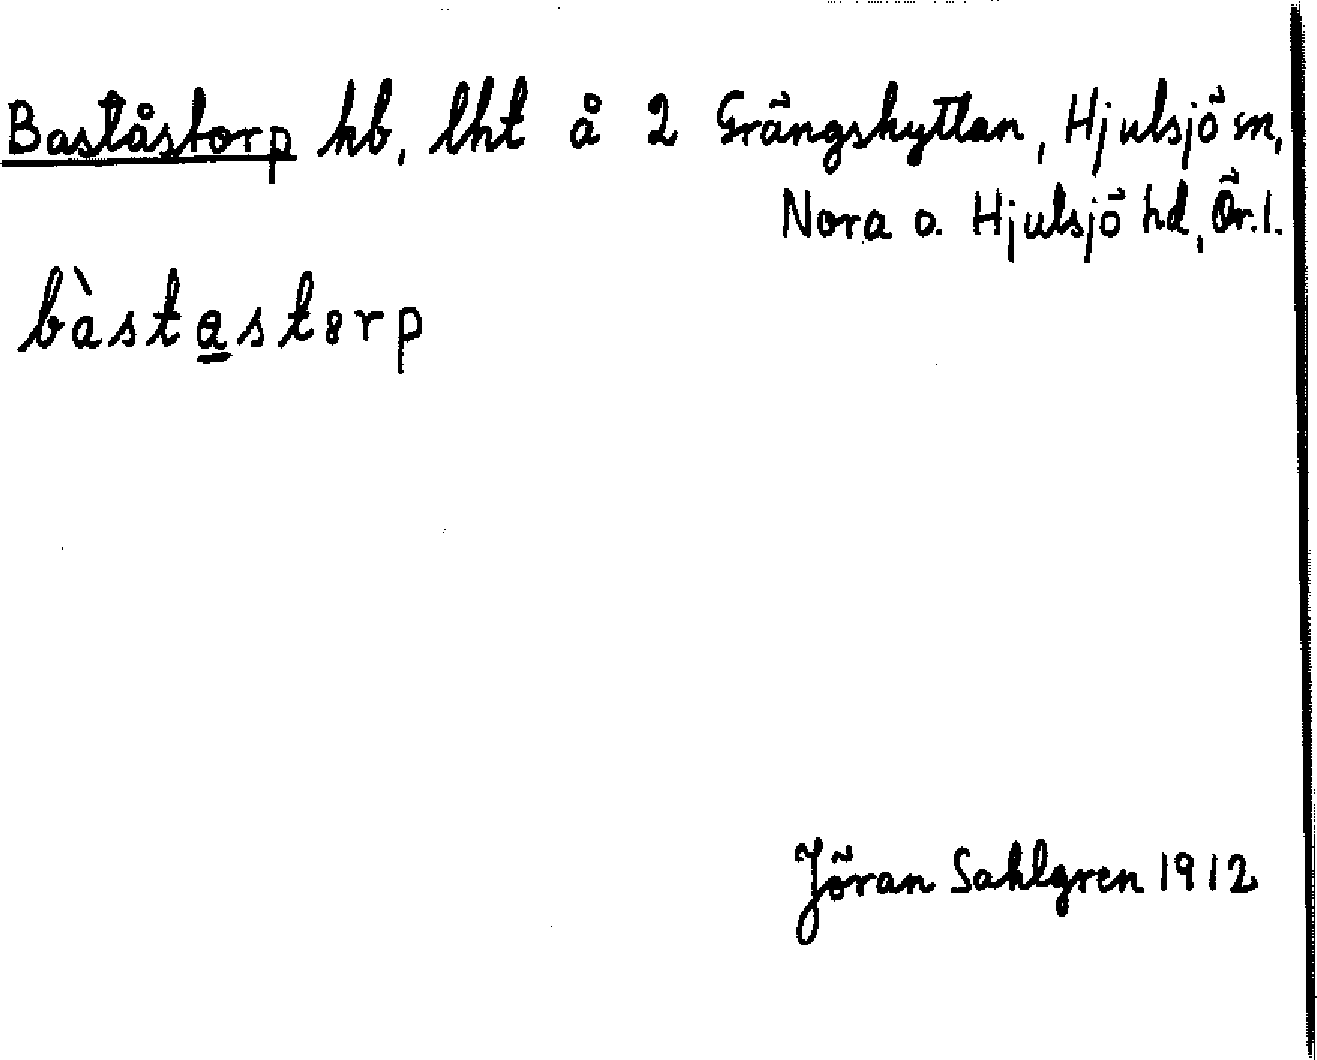 Baståstorp hb, lht å 2 Grängshyttan, Hjulsjö sn,
Nora o. Hjulsjö hd, Ör. l.
bàstastorp
Jöran Sahlgren 1912